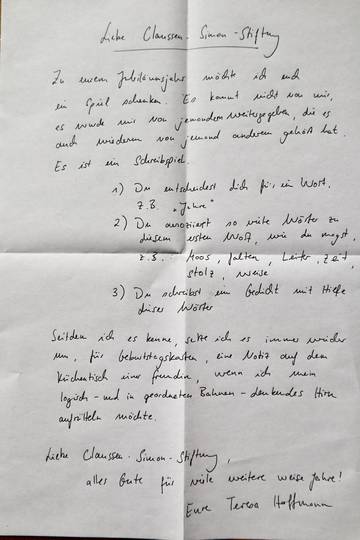 Liebe Claussen-Simon-Stiftung
Zu eurem Jubiläumsjahr möchte ich euch
ein Spiel schenken. Es kommt nicht von mir,
es wurde mir von jemandem weitergegeben, die es
auch wiederum von jemand anderem gehört hat.
Es ist ein Schreibspiel.
1) Du entscheidest dich für ein Wort,
z.B. „Jahre"
2) Du assoziierst so viele Wörter zu
diesem ersten Wort, wie du magst,
z.B. Moos, falten, Leiter, Zeit,
stolz, weise
3) Du schreibst ein Gedicht mit Hilfe
dieser Wörter
Seitdem ich es kenne, setze ich es immer wieder
um, für Geburtstagskarten, eine Notiz auf dem
Küchentisch einer Freundin, wenn ich mein
logisch- und in geordneten Bahnen-denkendes Hirn
aufrütteln möchte.
Liebe Claussen-Simon-Stiftung,
alles Gute für viele weitere weise Jahre!
Eure Teresa Hoffmann